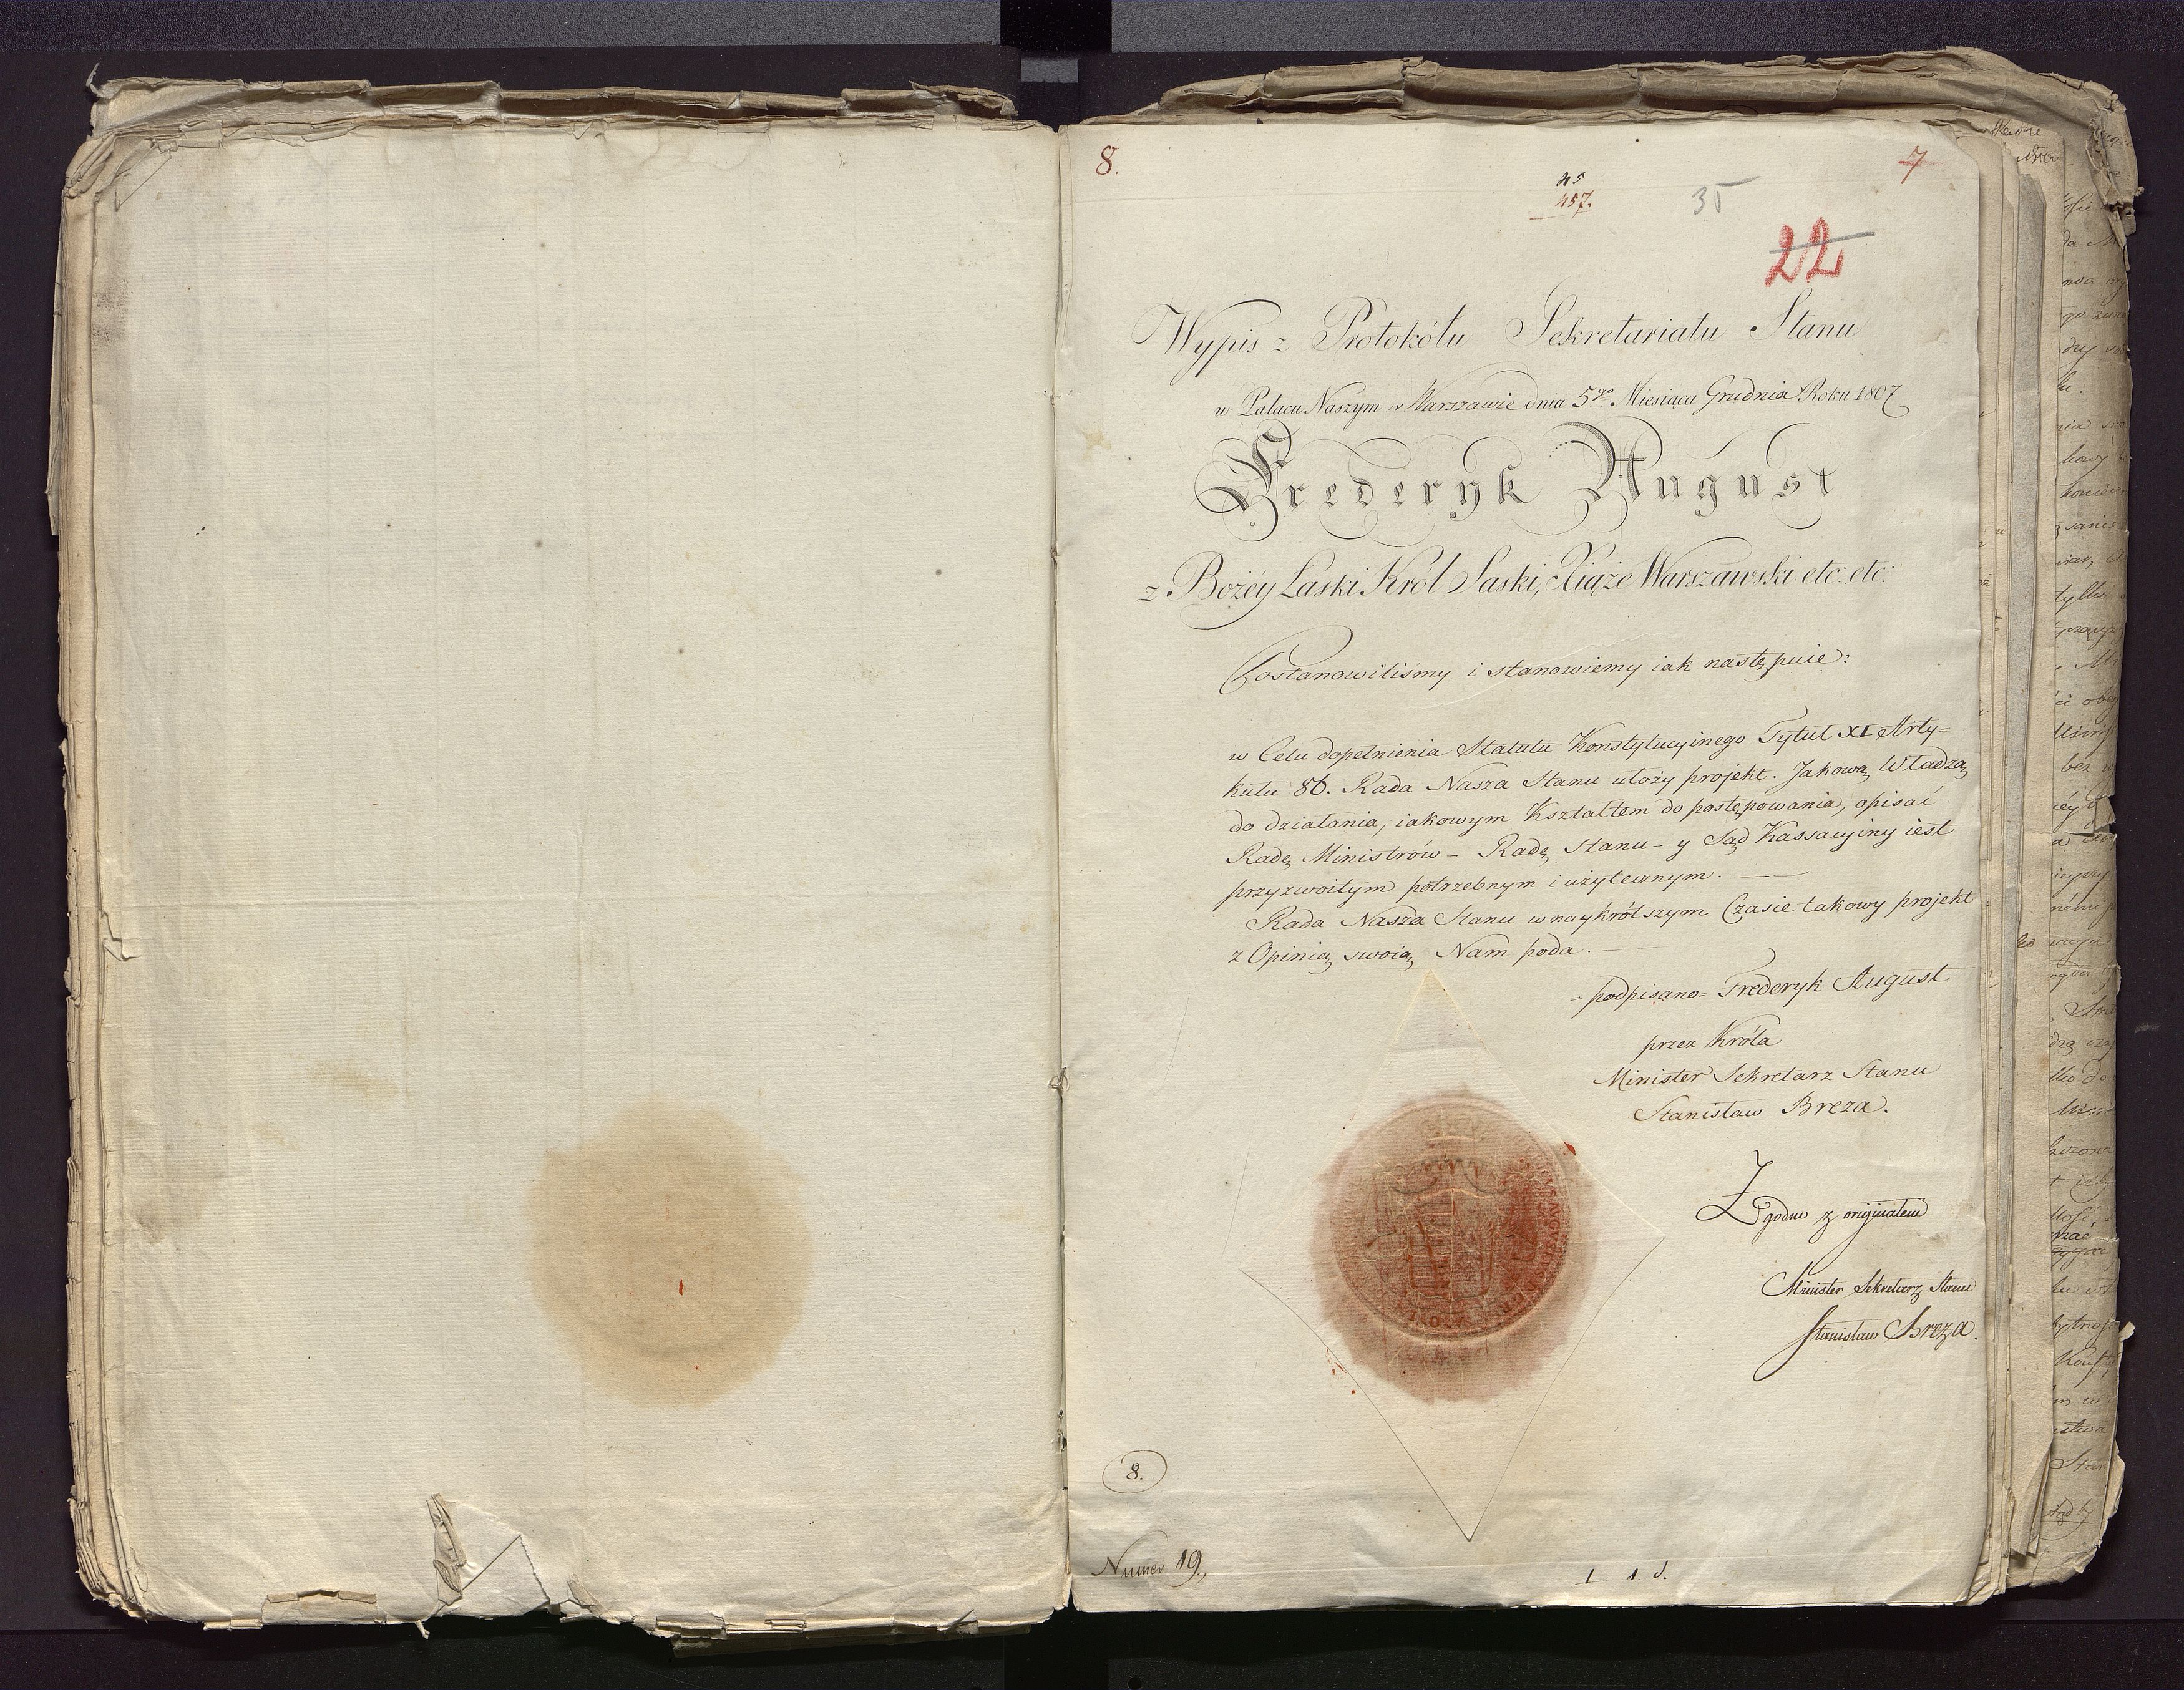 8.
7
45
457.
35
22
Wypis z Protokółu Sekretariatu Stanu
w Pałacu Naszym w Warszawie dnia 5go Miesiąca Grudnia Roku 1807
Frederyk August
z Bożéy Łaski Król Saski, Xiąże Warszawski etc: etc:
Postanowiliśmy i stanowiemy iak następuie:
w Celu dopełnienia Statutu Konstytucyinego Tytuł XI Arty=
kułu 86. Rada Nasza Stanu ułoży projekt. Jakową Władzą
do działania, iakowym Kształtem do postępowania, opisać
Radę Ministrów – Radę Stanu – y Sąd Kassacyiny iest
przyzwoitym potrzebnym i użytecznym. —
Rada Nasza Stanu w naykrótszym Czasie takowy projekt
z Opinią swoią Nam poda. —
= podpisano = Frederyk August
przez Króla
Minister Sekretarz Stanu
Stanisław Breza.
Zgodno z originałem
Minister Sekretarz Stanu
Stanisław Breza.
8.
Numer 19.